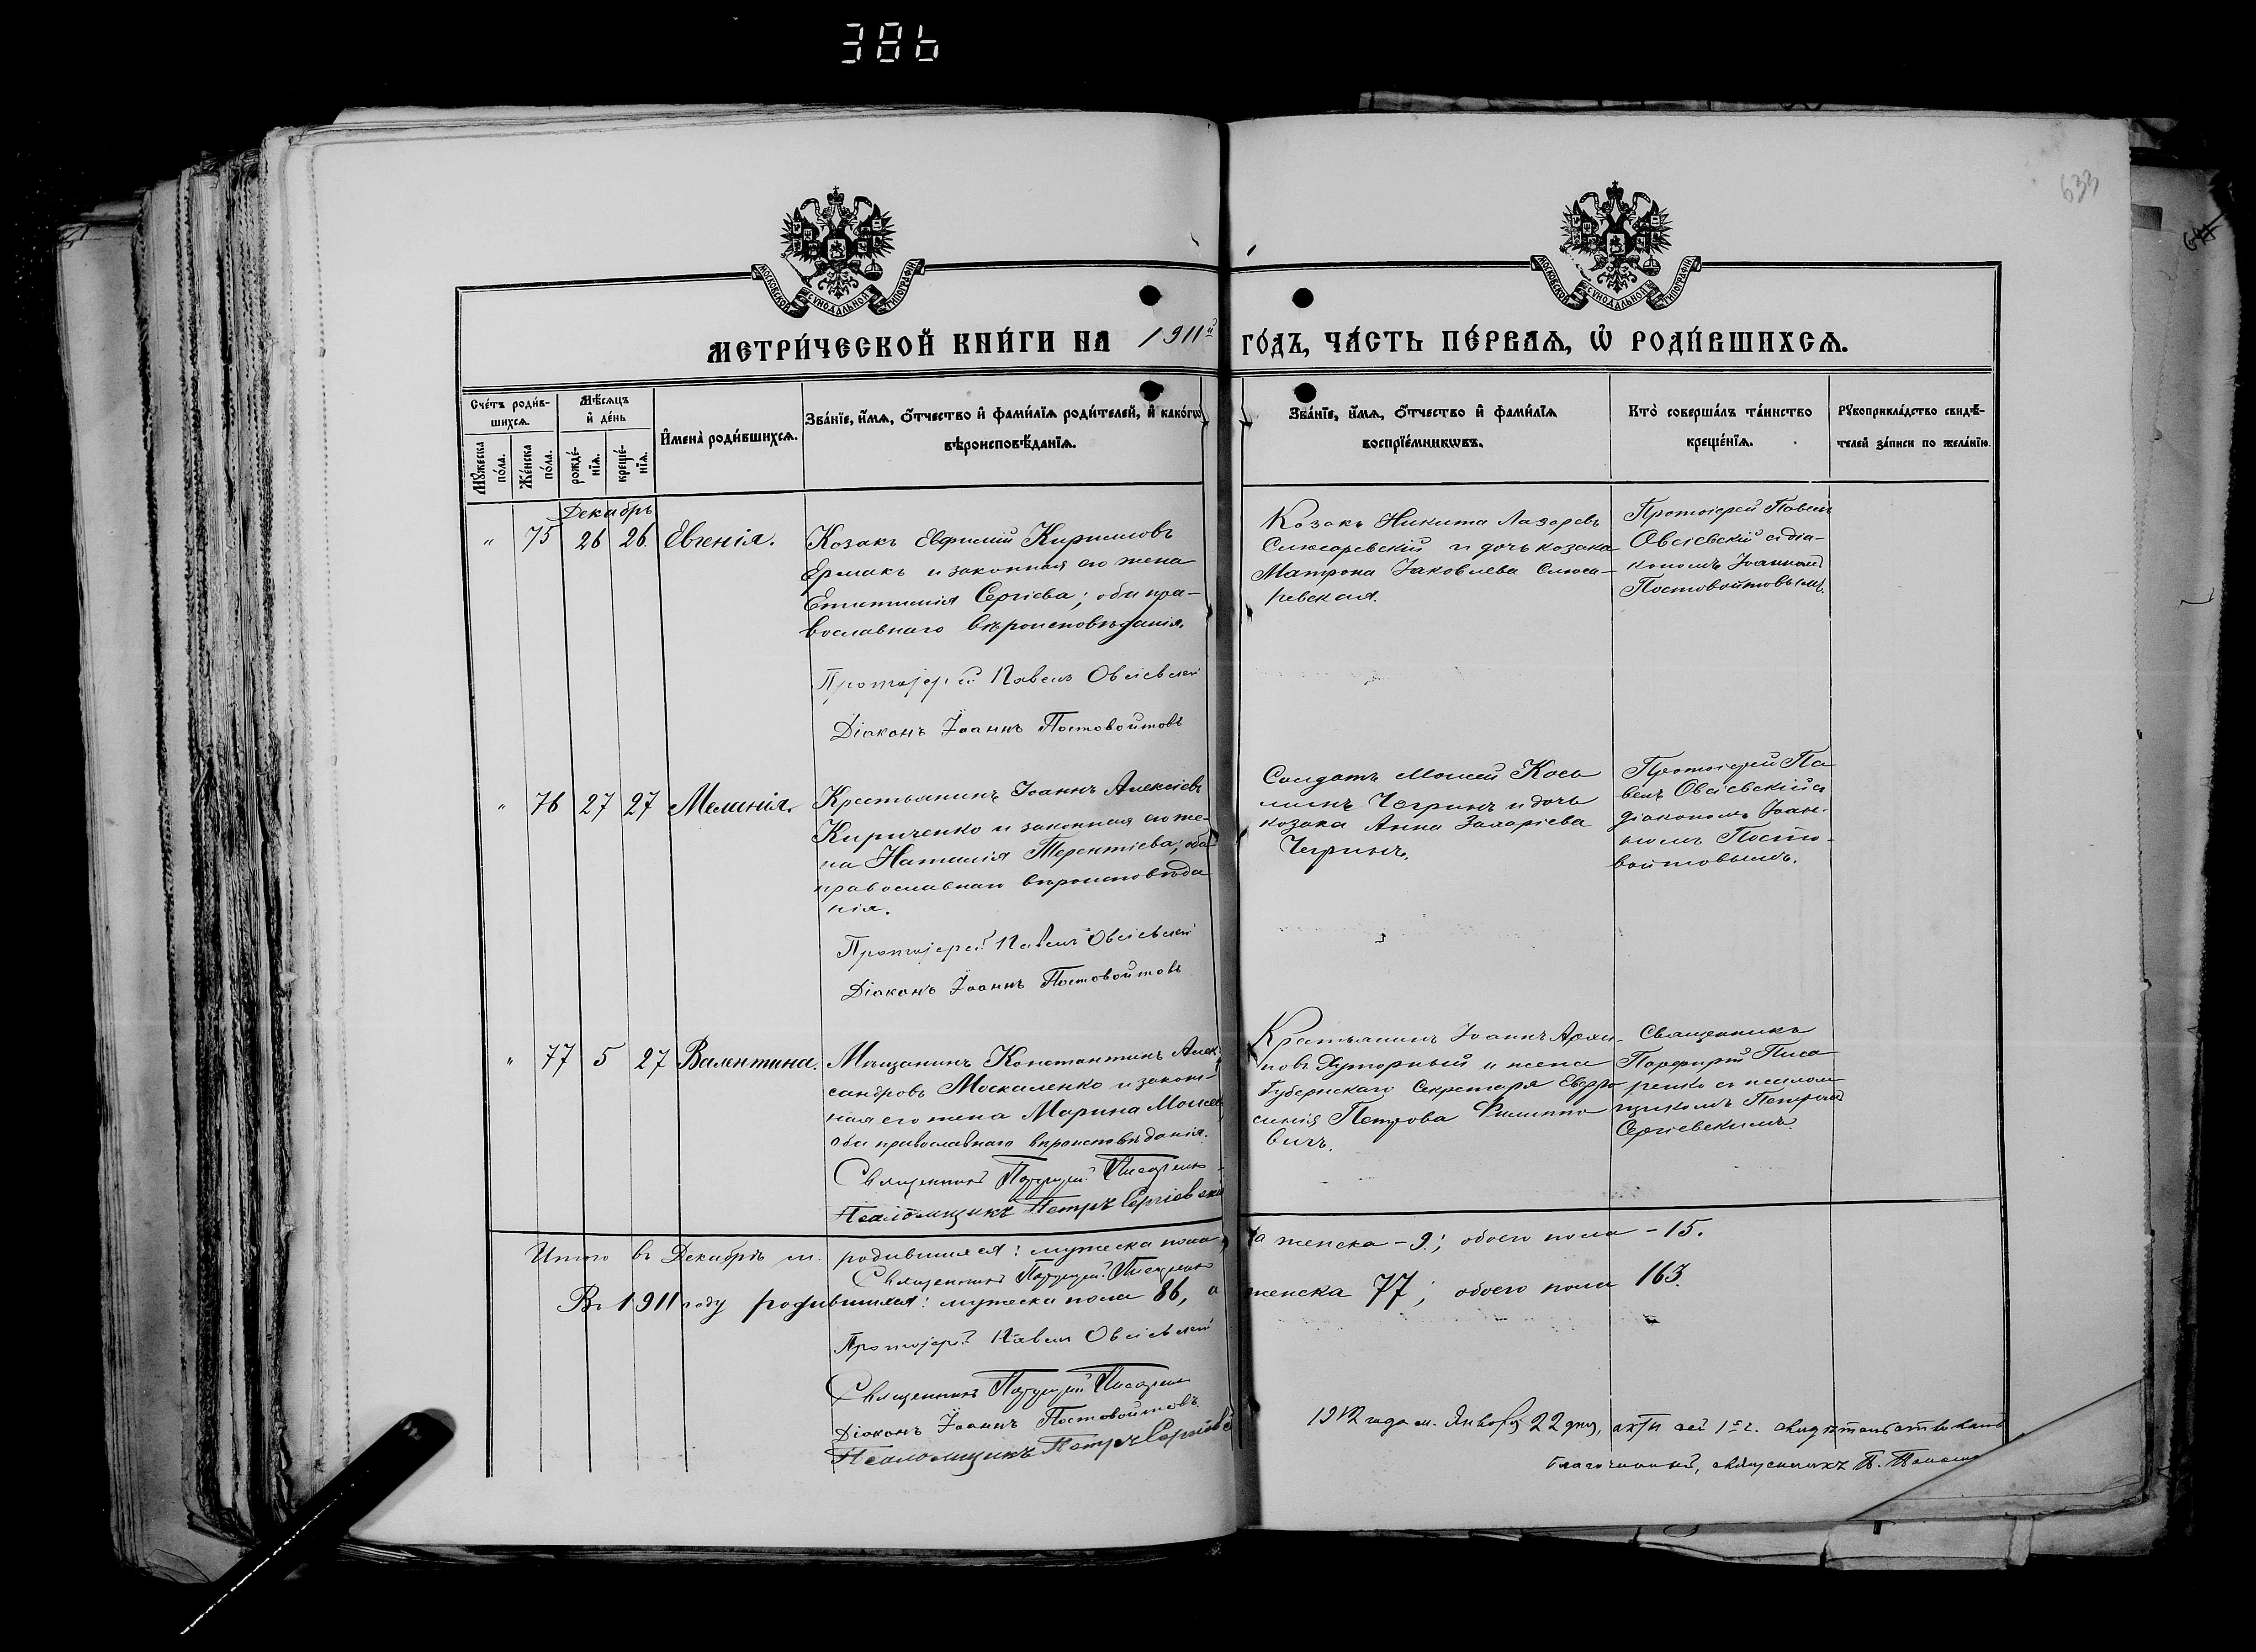 386
633
МОСКОВСКОЙ СУНОДАЛЬНОЙ ТИПОГРАФІИ
МОСКОВСКОЙ СУНОДАЛЬНОЙ ТИПОГРАФІИ
МЕТРИ́ЧЕСКОЙ КНИ́ГИ НА 1911й ГО́ДЪ, ЧА́СТЬ ПЕ́РВАѦ, Ѡ҆ РОДИ́ВШИХСѦ.
Сче́тъ роди́в-
шихсѧ.
Мꙋжеска по́ла.
Же́нска по́ла.
Мѣ́сѧцъ
и҆ де́нь
рожде́-
нїѧ.
креще́-
нїѧ.
И҆мена̀ роди́вшихсѧ.
Зва́нїе, и҆́мѧ, ѻ҆́тчество и҆ фами́лїѧ роди́телей, и҆ како́гѡ
вѣроисповѣ́данїѧ.
Зва́нїе, и҆́мѧ, ѻ҆́тчество и҆ фами́лїѧ
воспрїе́мникѡвъ.
Кто̀ соверша́лъ та́инство
креще́нїѧ.
Рꙋкоприкла́дство свидѣ́-
телей за́писи по жела́нїю.
Декабрь
" 75 26 26 Евгенія.
Козакъ Евфимій Кирилловъ
Ермакъ и законная его жена
Епистимія Сергіева; оба пра-
вославнаго вѣроисповѣданія.
Протоіерей Павелъ Овсіевскій
Діаконъ Іоаннъ Постовойтовъ
Козакъ Никита Лазаревъ
Слюсаревскій и дочь козака
Матрона Іаковлева Слюса-
ревская.
Протоіерей Павелъ
Овсіевскій съ діа-
кономъ Іоанномъ
Постовойтовымъ.
" 76 27 27 Меланія.
Крестьянинъ Іоаннъ Алексіевъ
Кириченко и законная его же-
на Наталія Терентіева; оба
православнаго вѣроисповѣда
нія.
Протоіерей Павелъ Овсіевскій
Діаконъ Іоаннъ Постовойтовъ
Солдатъ Моисей Косьминъ Чегринъ и дочь
козака Анна Захаріева
Чегринъ.
Протоіерей Па
велъ Овсіевскій съ
діакономъ Іоан-
номъ Посто-
войтовымъ.
" 77 5 27 Валентина.
Мѣщанинъ Константинъ Алек
сандровъ Москаленко и закон-
ная его жена Марина Моисев
оба православнаго вѣроисповѣданія.
Священникъ Порфирій Писаренко
Псаломщикъ Петръ Сергіевскій
Крестьянинъ Іоаннъ Архи-
повъ Хуторный и жена
Губернскаго Секретаря Евфро
синія Петрова Филиппо
вичъ.
Священникъ
Порфирій Писа
ренко съ псалом
щикомъ Петромъ
Сергіевскимъ.
Итого въ Декабрѣ м. родившихся: мужеска пола, а женска - 9; обоего пола - 15.
Священникъ Порфирій Писаренко
Въ 1911 году родившихся: мужеска пола 86, а женска 77; обоего пола 163.
Протоіерей Павелъ Овсіевскій
Священникъ Порфирій Писаренко
Діаконъ Іоаннъ Постовойтовъ
Псаломщикъ Петръ Сергіевскій
1912 года м. Января 22 дня, акты сей 1й ч. свидѣтельствовалъ
Благочинный, священникъ П.